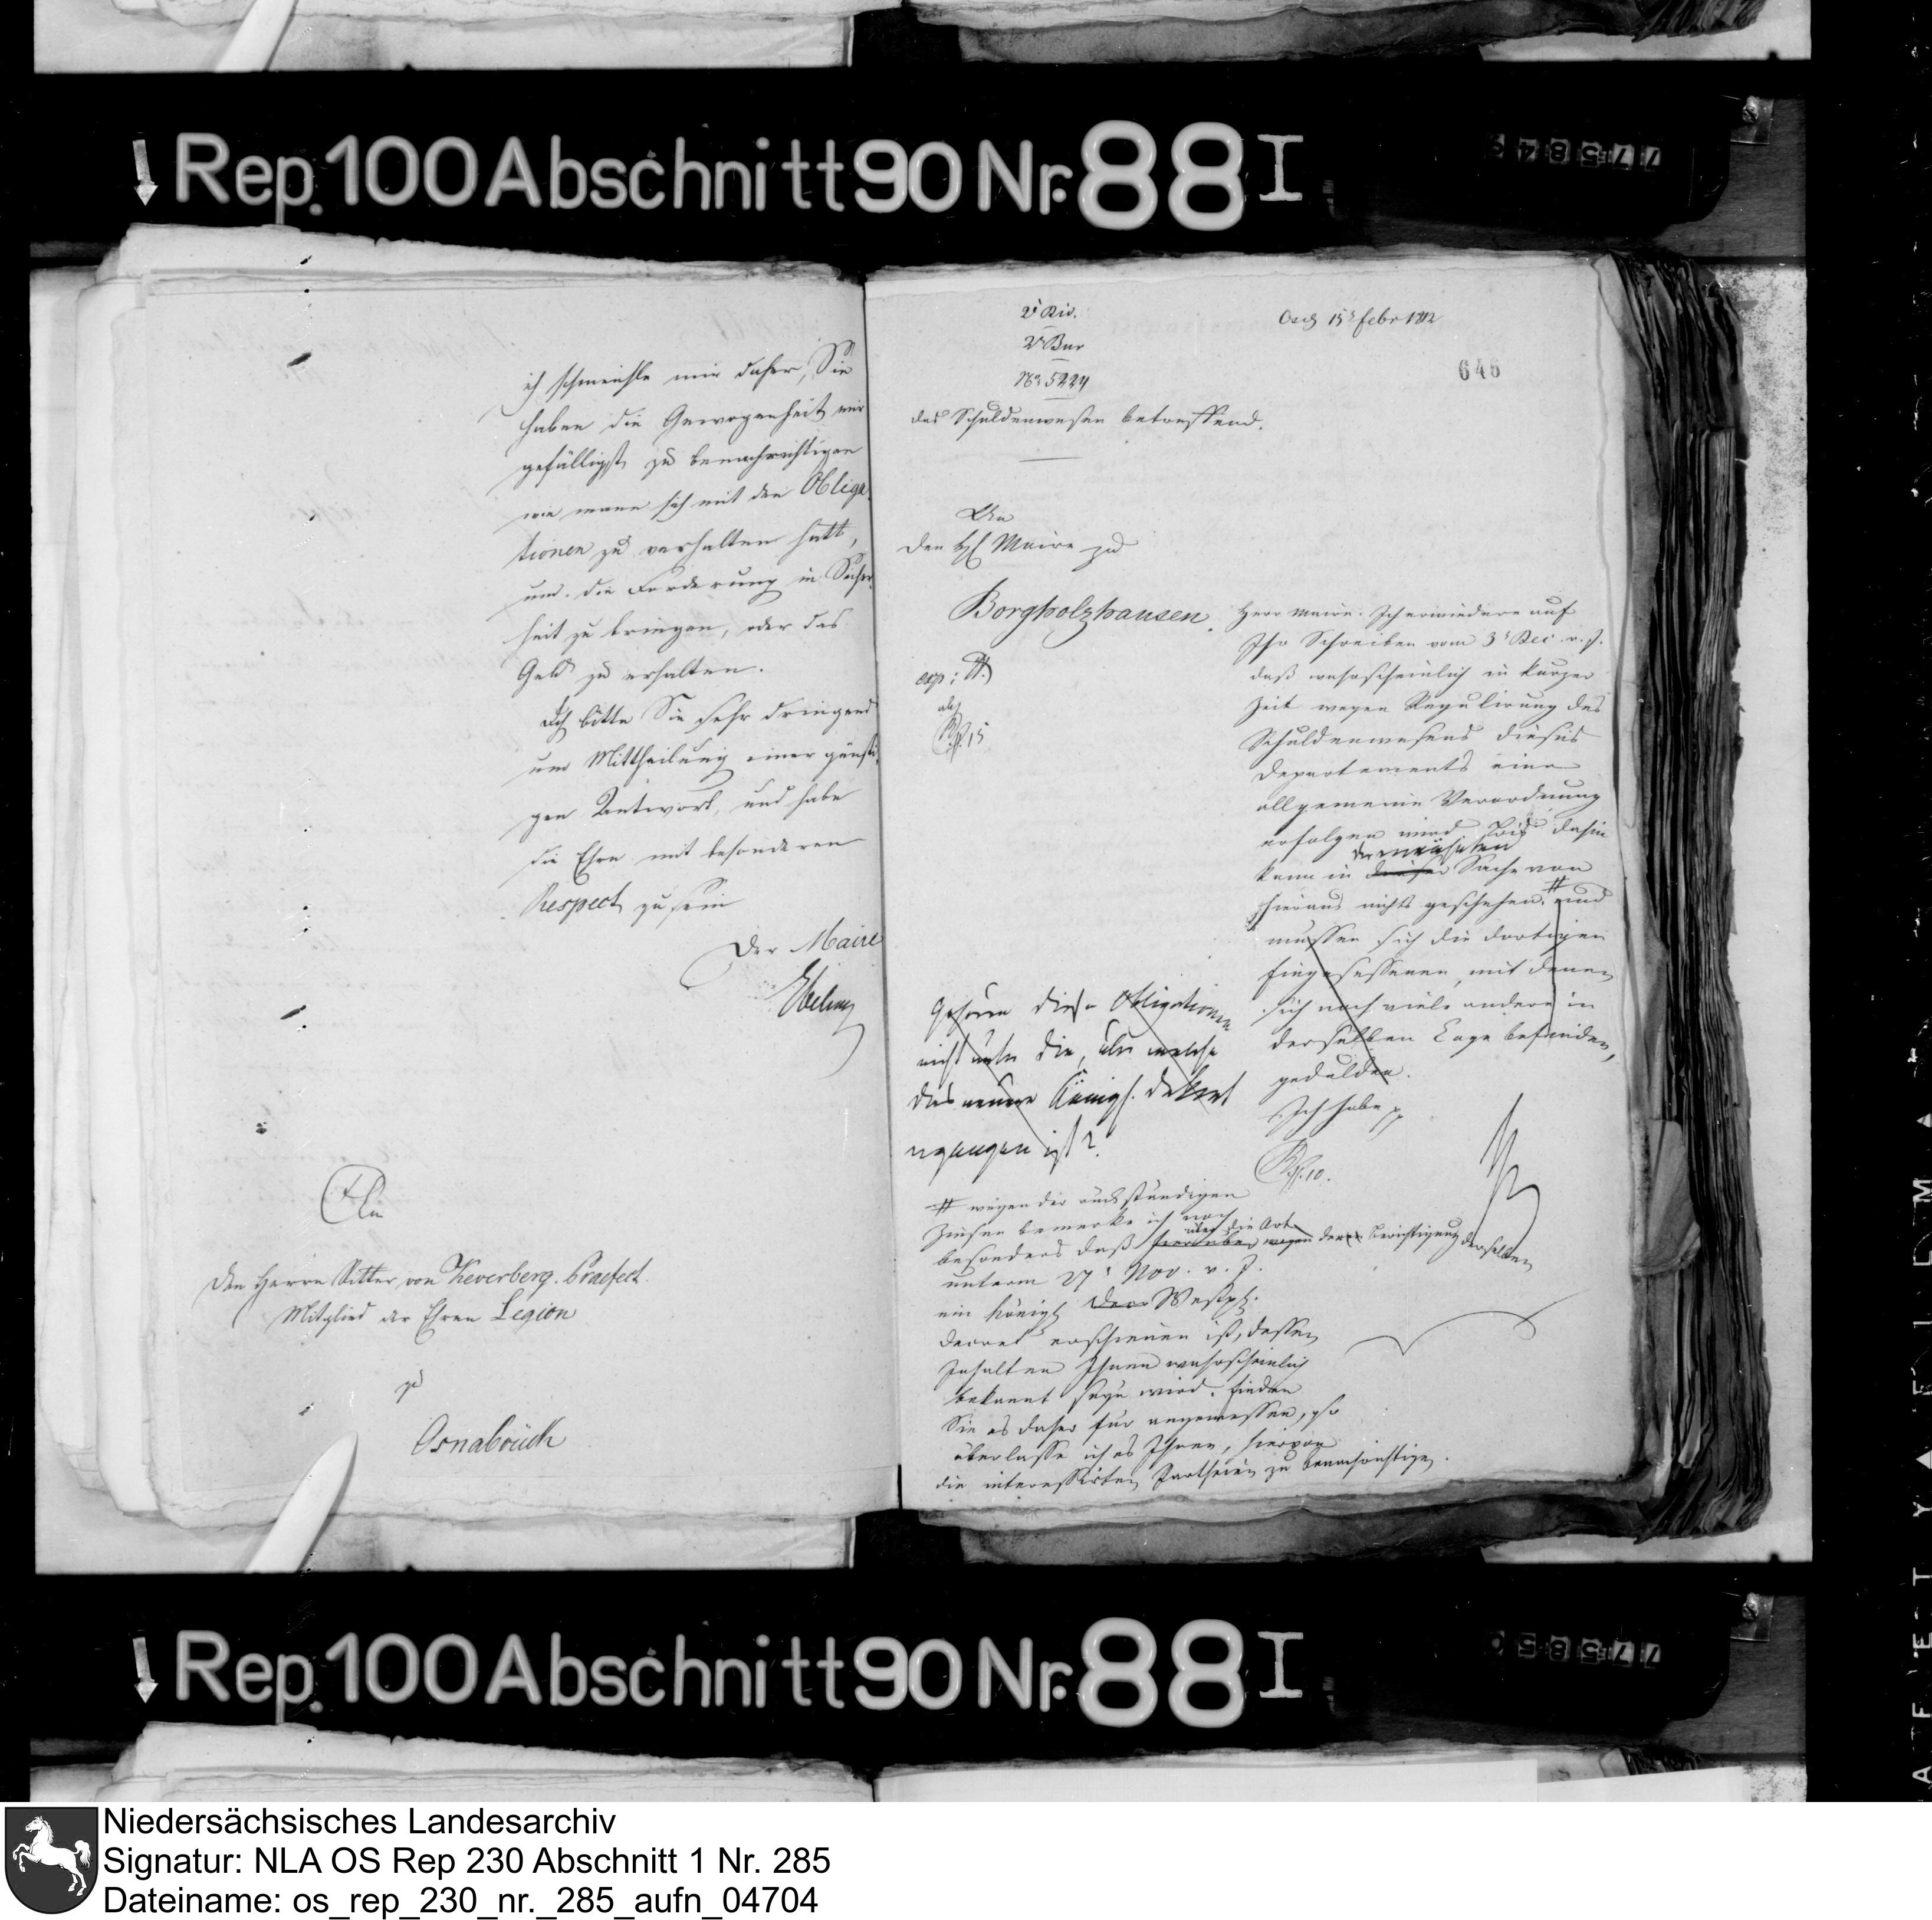 Rep. 100 Abschnitt 90 Nr. 88 I
ich schmeichle mir daher, Sie
haben die Gewogenheit mir
gefälligst zu benachrichtigen
wie mann sich mit den Obliga
tionen zu verhalten hatt,
um die Forderung in Sicher
heit zu bringen, oder das
Geld zu erhalten.
Ich bitte Sie sehr dringend
um Mittheilung einer günsti
gen Antwort, und habe
die Ehre mit besonderen
Respect zu sein
Der Maire
Ebeling
An
Den Herrn Ritter von Keverberg. Praefect
Mitglied der Ehren Legion
zu
Osnabrück
2. Div.
2. Bur
No 5224
Osn. 15 Febr 1812
646
das Schuldenwesen betreffend.
An
den H. Maire zu
Borgholzhausen.
exp:
15
Herr Maire. Ich erwiedere auf
Ihr Schreiben vom 3. Dec. v. J.
daß wahrscheinlich in kurzer
Zeit wegen Regulirung des
Schuldenwesens dieses
Departements eine
allgemeine Verordnung
erfolgen wird. Bis dahin
kann in dieser Sache von
hieraus nichts geschehen. # und
müssen sich die dortigen
Eingesessenen, mit denen
sich noch viele andere in
derselben Lage befinden,
gedulden.
Ich habe pp
10.
Gehören diese Obligationen
nicht unter die, über welche
das neuere Königl. Dekret
ergangen ist?
# wegen der rückständigen
Zinsen bemerke ich noch
besonders daß hierüber wegen über die Art der Berichtigung derselben
unterm 27. Nov. v. J.
ein Königl. Westph.
Decret erschienen ist, dessen
Inhalt an Ihnen wahrscheinlich
bekannt seyn wird. Finden
Sie es daher für angemessen, so
überlasse ich es Ihnen, hiervon
die interessirten Partheien zu benachrichtigen.
Rep. 100 Abschnitt 90 Nr. 88 I
Niedersächsisches Landesarchiv
Signatur: NLA OS Rep 230 Abschnitt 1 Nr. 285
Dateiname: os_rep_230_nr._285_aufn_04704